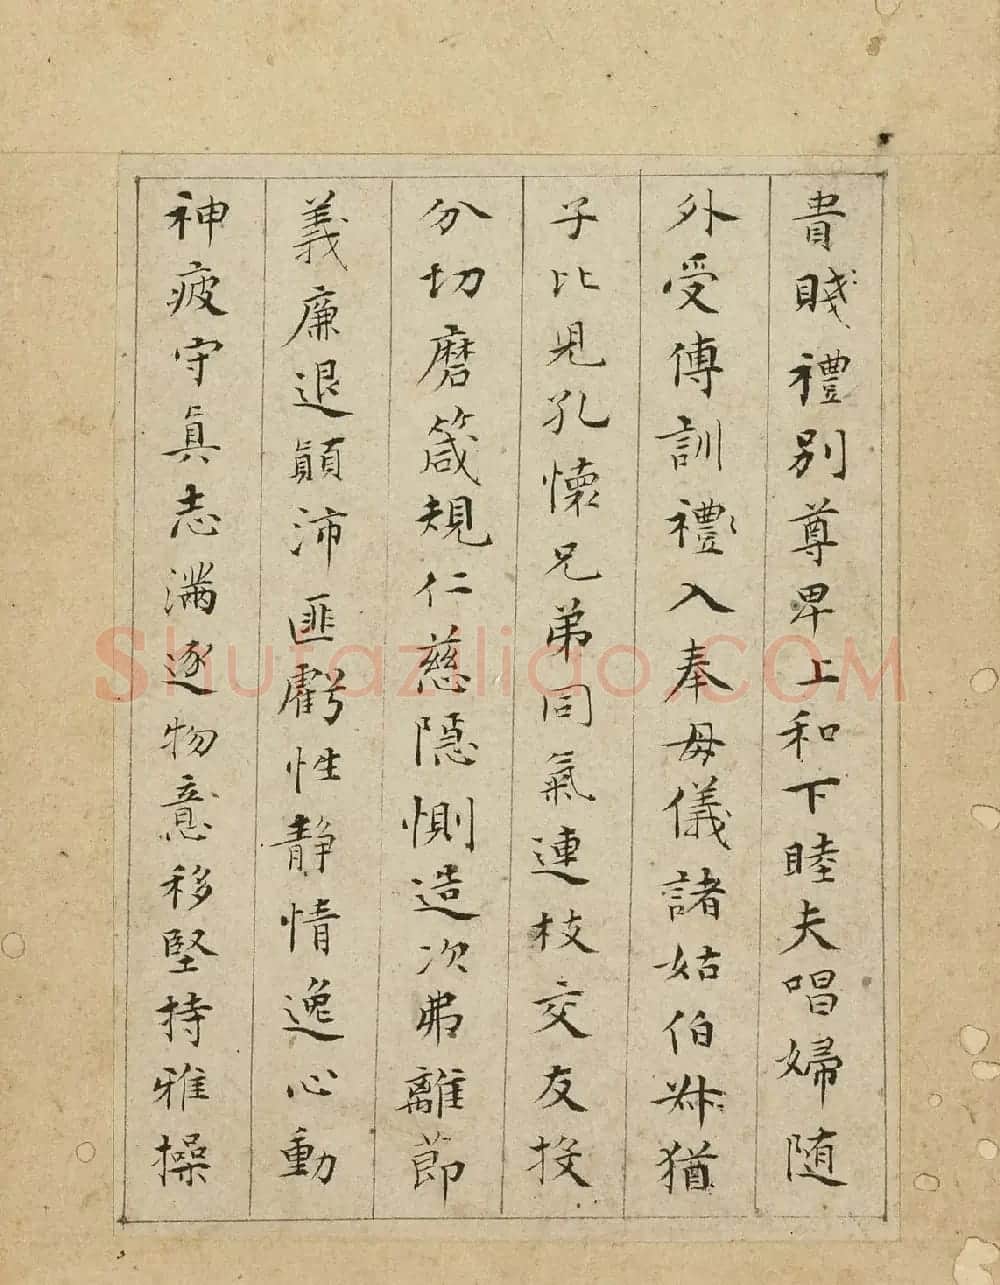 貴賤禮別尊卑上和下睦夫唱婦随
外受傅訓禮入奉母儀諸姑伯叔猶
子比兒孔懷兄弟同氣連枝交友投
分切磨箴規仁慈隱惻造次弗離節
義廉退顛沛匪虧性静情逸心動
神疲守眞志滿逐物意移堅持雅操
Shufaziliao.COM